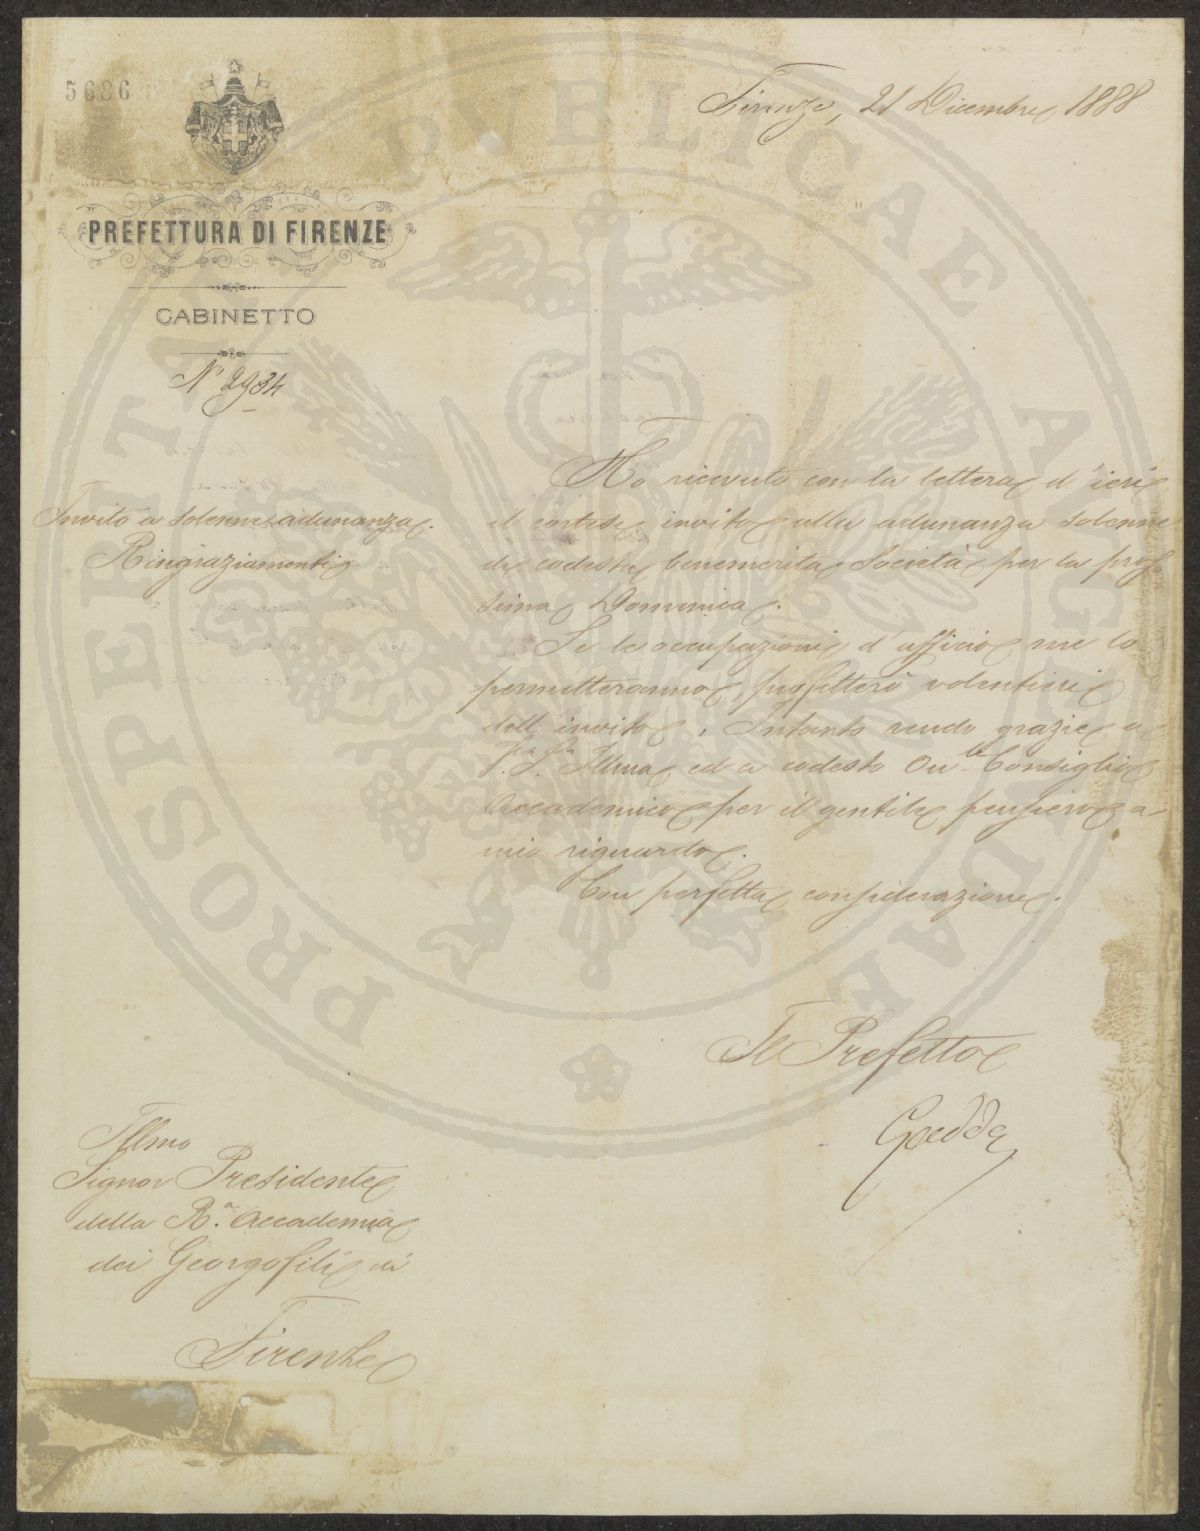 5686
Firenze, 21 Dicembre 1888
PREFETTURA DI FIRENZE
GABINETTO
N° 2934
Invito a solenne adunanza.
Ringraziamenti
Ho ricevuto con la lettera d'ieri
il cortese invito alla adunanza solenne
di codesta benemerita Società per la pros
sima Domenica.
Se le occupazioni d'ufficio me lo
permetteranno, profitterò volentieri
dell'invito. Intanto rendo grazie a
V.a S.a Illma ed a codesto On.le Consiglio
Accademico per il gentile pensiero a
mio riguardo.
Con perfetta considerazione.
Il Prefetto
Gadda
Illmo
Signor Presidente
della R.a Accademia
dei Georgofili di
Firenze
PROSPERITATI PUBLICAE AUGENDAE